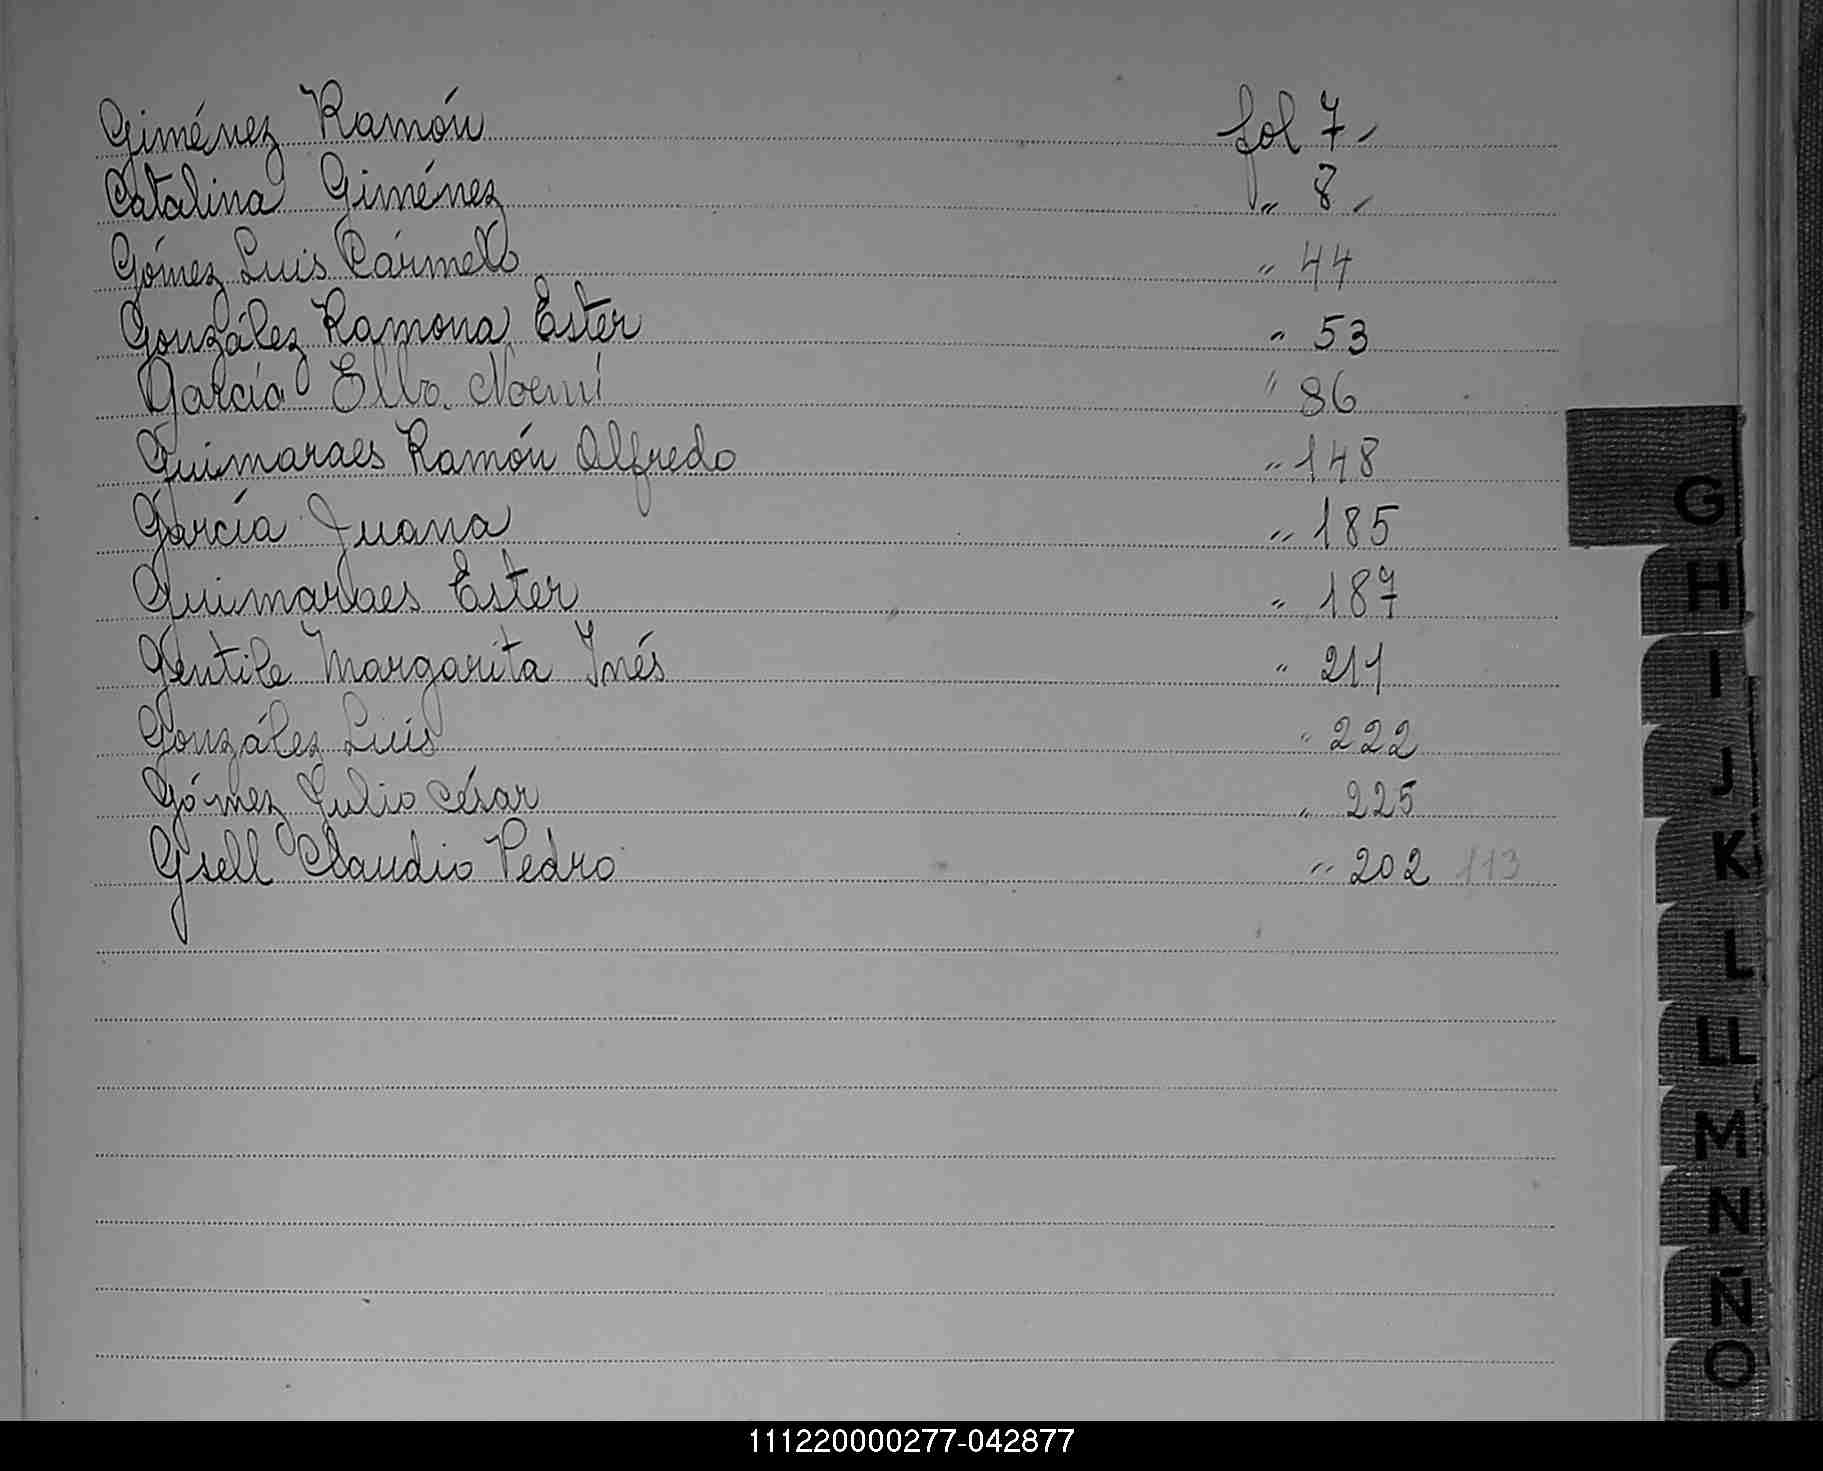 Giménez Ramón fol 7,
Catalina Giménez " 8,
Gómez Luis Cármelo " 44
González Ramona Ester " 53
García Elba Noemí " 86
Guimaraes Ramón Alfredo " 148
García Juana " 185
Guimaraes Ester " 187
Gentile Margarita Inés " 211
González Luis " 222
Gómez Julio César " 225
Gsell Claudio Pedro " 202 113
G
H
I
J
K
L
LL
M
N
Ñ
O
111220000277-042877